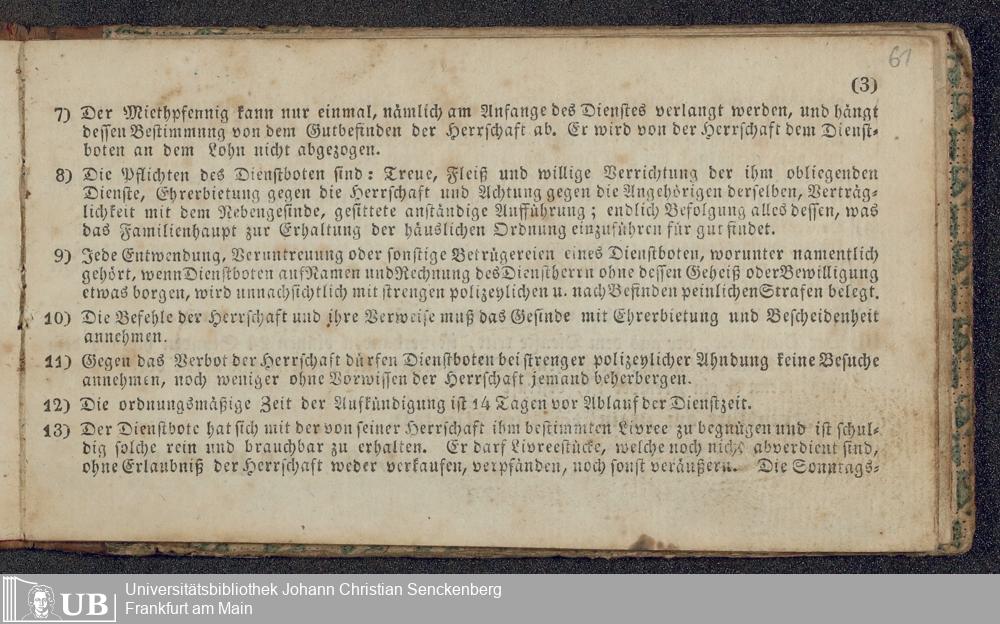 61
(3)
7) Der Miethpfennig kann nur einmal, nämlich am Anfange des Dienstes verlangt werden, und hängt
dessen Bestimmung von dem Gutbefinden der Herrschaft ab. Er wird von der Herrschaft dem Dienst-
boten an dem Lohn nicht abgezogen.
8) Die Pflichten des Dienstboten sind: Treue, Fleiß und willige Verrichtung der ihm obliegenden
Dienste, Ehrerbietung gegen die Herrschaft und Achtung gegen die Angehörigen derselben, Verträg-
lichkeit mit dem Nebengesinde, gesittete anständige Aufführung; endlich Befolgung alles dessen, was
das Familienhaupt zur Erhaltung der häuslichen Ordnung einzuführen für gut findet.
9) Jede Entwendung, Veruntreuung oder sonstige Betrügereien eines Dienstboten, worunter namentlich
gehört, wenn Dienstboten auf Namen und Rechnung des Dienstherrn ohne dessen Geheiß oder Bewilligung
etwas borgen, wird unnachsichtlich mit strengen polizeylichen u. nach Befinden peinlichen Strafen belegt.
10) Die Befehle der Herrschaft und ihre Verweise muß das Gesinde mit Ehrerbietung und Bescheidenheit
annehmen.
11) Gegen das Verbot der Herrschaft dürfen Dienstboten bei strenger polizeylicher Ahndung keine Besuche
annehmen, noch weniger ohne Vorwissen der Herrschaft jemand beherbergen.
12) Die ordnungsmäßige Zeit der Aufkündigung ist 14 Tagen vor Ablauf der Dienstzeit.
13) Der Dienstbote hat sich mit der von seiner Herrschaft ihm bestimmten Livree zu begnügen und ist schul-
dig solche rein und brauchbar zu erhalten. Er darf Livreestücke, welche noch nicht abverdient sind,
ohne Erlaubniß der Herrschaft weder verkaufen, verpfänden, noch sonst veräußern. Die Sonntags-
UB
Universitätsbibliothek Johann Christian Senckenberg
Frankfurt am Main